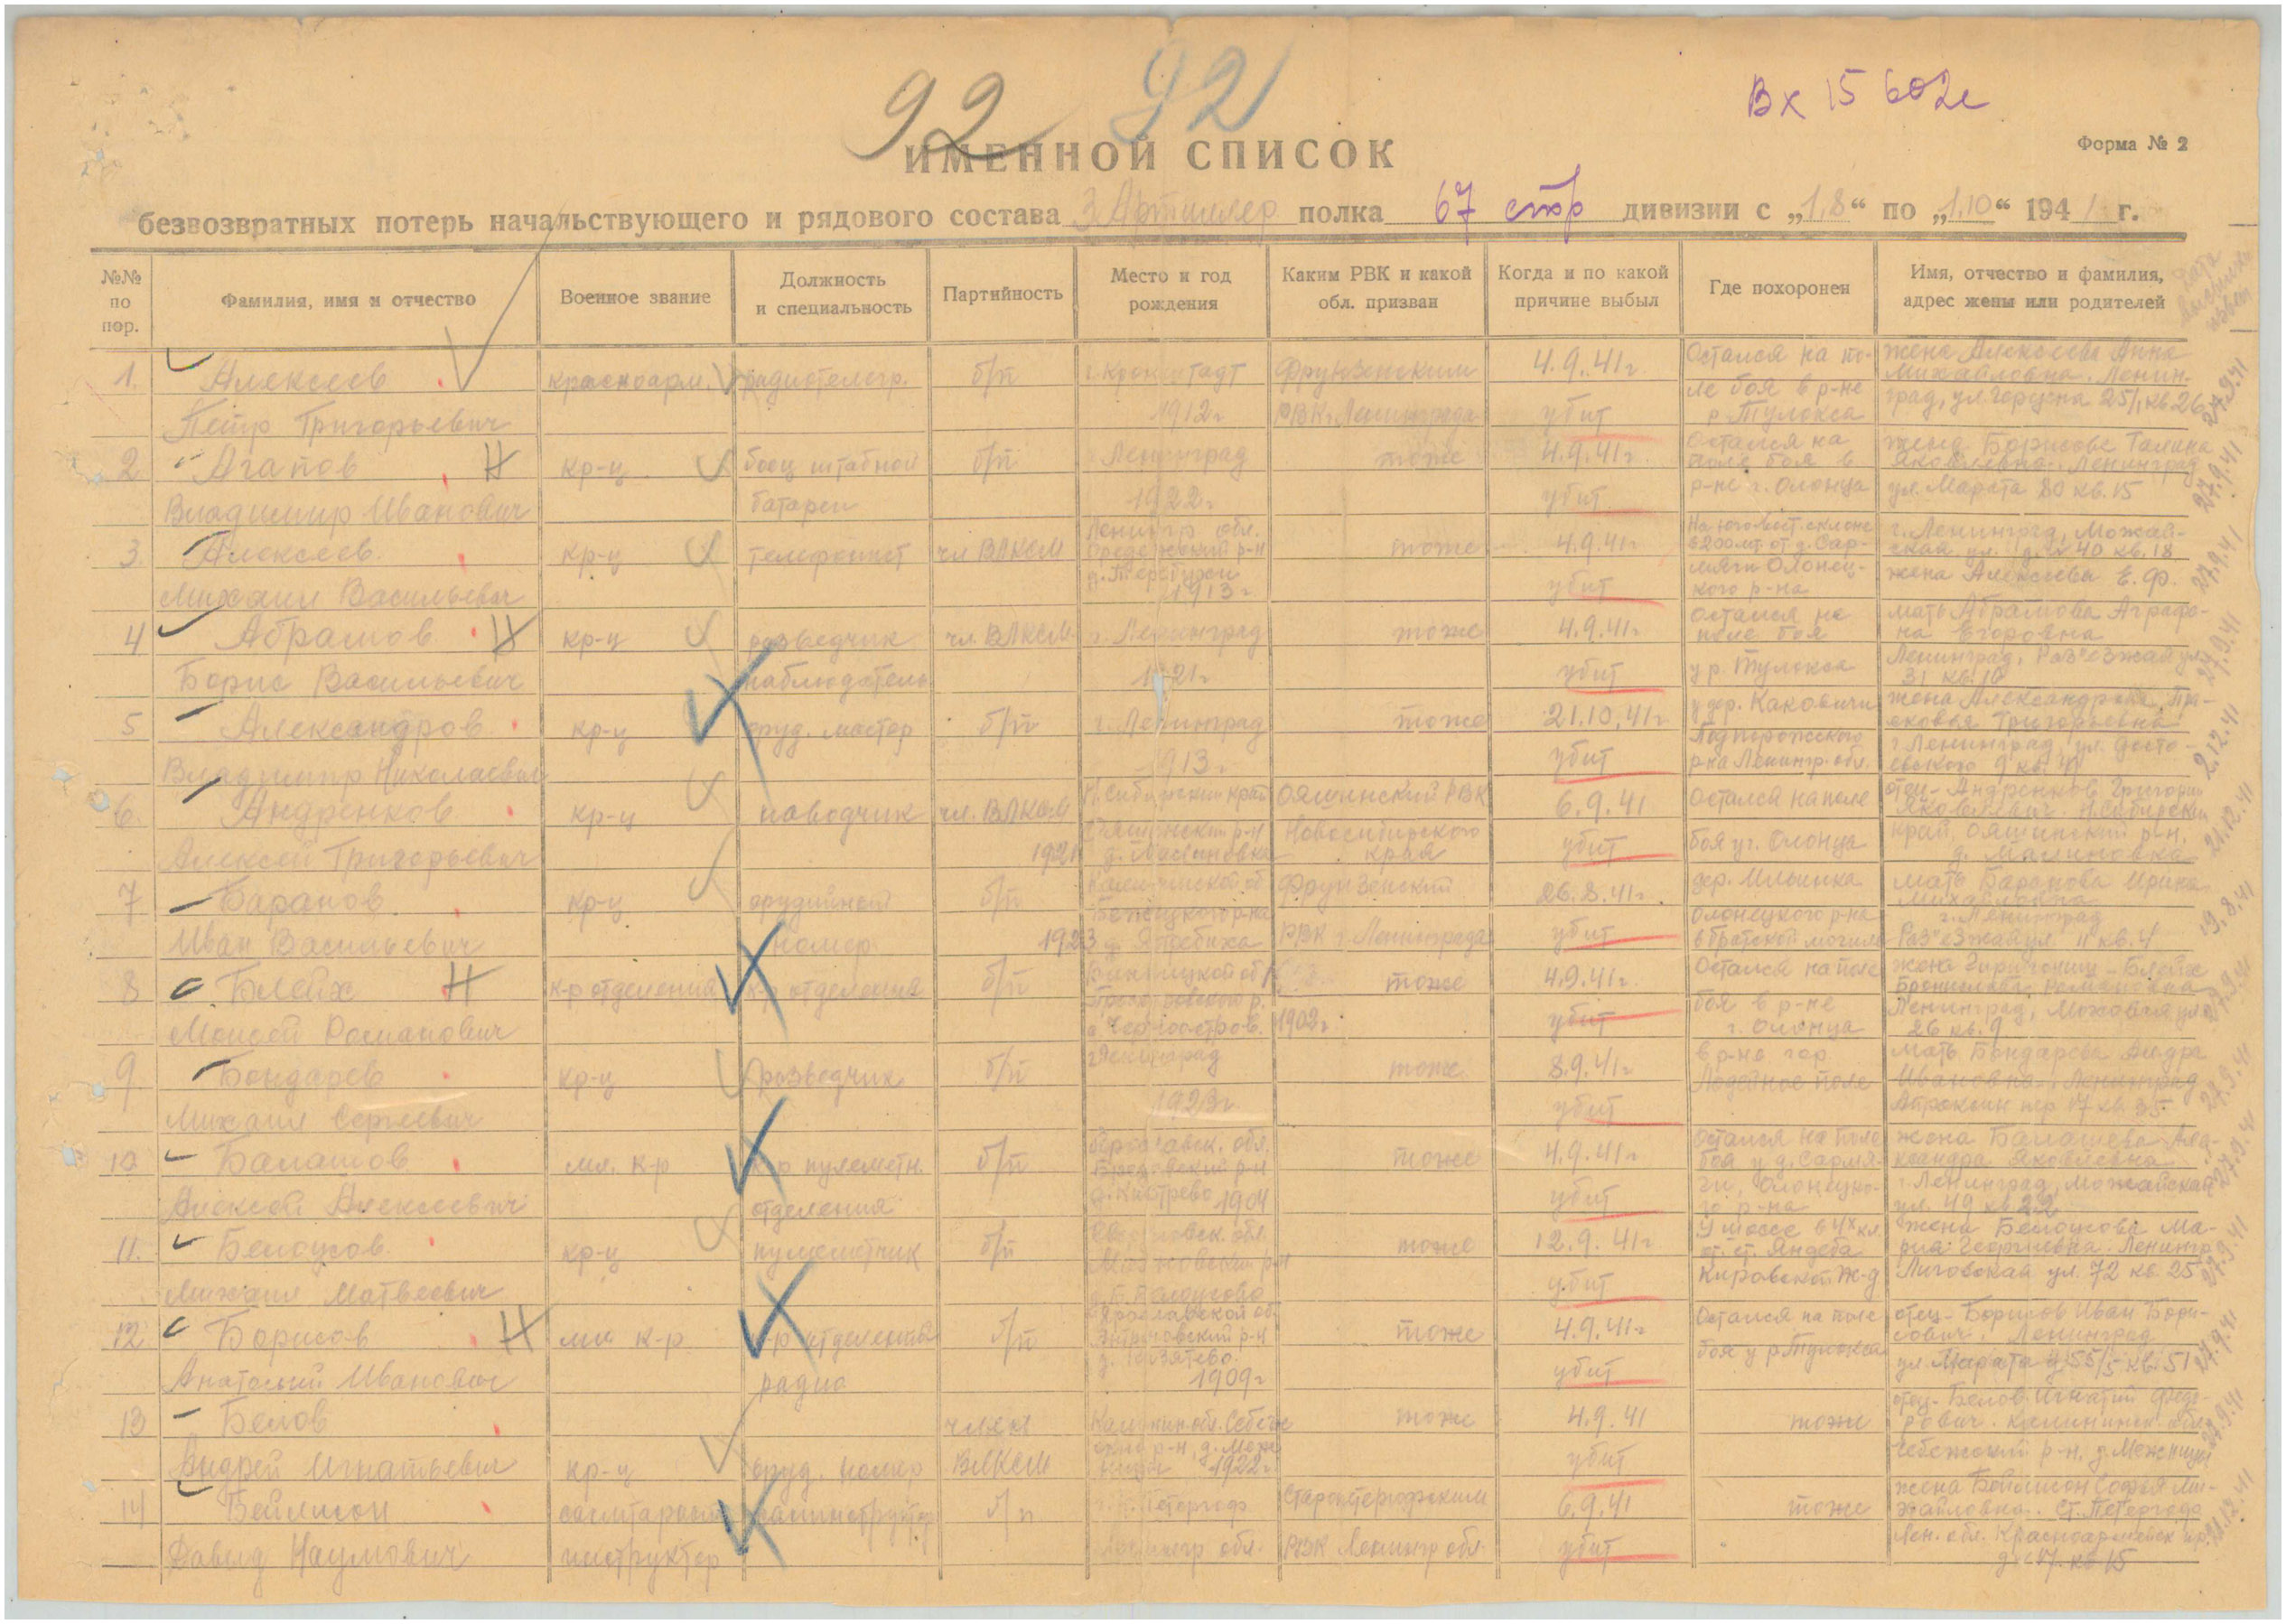 92 92
Вх 15 602с
Форма № 2
ИМЕННОЙ СПИСОК
безвозвратных потерь начальствующего и рядового состава 3 Артиллер полка 67 стр дивизии с „1.8“ по „1.10“ 1941 г.
№№ по пор.
Фамилия, имя и отчество
Военное звание
Должность и специальность
Партийность
Место и год рождения
Каким РВК и какой обл. призван
Когда и по какой причине выбыл
Где похоронен
Имя, отчество и фамилия, адрес жены или родителей
1. Алексеев красноарм. радиотелегр. б/п г. Кронштадт Фрунзенским 4.9.41г. Остался на по- жена Алексеева Анна
Михайловна. Ленин-
Петр Григорьевич 1912г РВК г. Ленинграда убит ле боя в р-не град, ул. Герцена 25/1 кв. 26 27.9.41
р. Тулокса
2 Агапов Н кр-ц боец штабной б/п Ленинград тоже 4.9.41г. Остался на жена Борисова Галина
поле боя в Яковлевна. Ленинград
Владимир Иванович батареи 1922г убит р-не г. Олонца ул. Марата 80 кв. 15 27.9.41
3. Алексеев кр-ц телефонист чл ВЛКСМ Ленингр обл. тоже 4.9.41г г. Ленинград, Можай-
в 200 мт. от д. Сар- ская ул. д. 40 кв. 18
Михаил Васильевич 1913г убит мяги Олонец- жена Алексеева Е. Ф. 27.9.41
кого р-на
4 Абрамов Н кр-ц разведчик чл. ВЛКСМ г. Ленинград тоже 4.9.41г Остался на мать Абрамова Аграфе-
поле боя на Егоровна
Борис Васильевич наблюдатель 1921г убит у р. Тулокса Ленинград, Раз"езжая ул. 27.9.41
31 кв. 10
5 Александров кр-ц оруд. мастер б/п г. Ленинград тоже 21.10.41г у дер. Каковичи жена Александрова Пра-
сковья Григорьевна
Владимир Николаевич 1913г. убит Подпорожского г. Ленинград, ул. Досто-
р-на Ленингр. обл. евского 9 кв. 2.12.41
6. Андренков кр-ц наводчик чл. ВЛКСМ Н. Сибирский край Ояшинский РВК 6.9.41 Остался на поле отец - Андренков Григорий
Ояшинский р-н Новосибирского Яковлевич. Н. Сибирский
Алексей Григорьевич 1921 д. Малиновка края убит боя у г. Олонца край, Ояшинский р-н, 21.12.41
д. Малиновка
7 Баранов кр-ц орудийный б/п Калининской об Фрунзенский 26.8.41г. дер. Ильинка мать Баранова Ирина
Бежецкого р-на Олонецкого р-на Михайловна г. Ленинград
Иван Васильевич номер 1923 РВК г. Ленинграда убит в братской могиле Раз"езжая ул. 11 кв. 4 19.8.41
8 Блейх Н к-р отделения к-р отделения б/п Винницкой обл тоже 4.9.41г. Остался на поле
Моисей Романович 1902г. убит боя в р-не Ленинград, Моховая ул. 27.9.41
г. Олонца 26 кв. 9
9 Бондарев кр-ц разведчик б/п г. Ленинград тоже 8.9.41г в р-не гор. мать Бондарева
Лодейное поле Ивановна. Ленинград
Михаил Сергеевич 1923г. убит Апраксин пер 17 кв 35. 27.9.41
10 Балашов мл. к-р к-р пулеметн. б/п Ярославск. обл. тоже 4.9.41г. Остался на поле жена Балашева Але-
боя у д. Сармя- ксандра Яковлевна
Алексей Алексеевич отделения 1904 убит ги, Олонецко- г. Ленинград, Можайская 27.9.41
го р-на ул. 49 кв 22
11. Белоусов кр-ц пулеметчик б/п тоже 12.9.41г У шоссе в 4х кл. жена Белоусова Ма-
от ст. Яндеба рия Георгиевна. Ленингр
Михаил Матвеевич убит Кировской ж-д Лиговская ул. 72 кв. 25 27.9.41
12 Борисов Н мл. к-р к-р отделения б/п Ярославской об. тоже 4.9.41г Остался на поле отец - Борисов Иван Бори-
боя у р Тулокса сович. Ленинград
Анатолий Иванович радио 1909г убит ул. Марата д. 55/5 кв. 51 27.9.41
13 Белов член Калинин. обл. Себеж тоже 4.9.41 тоже отец - Белов Игнатий Федо-
рович. Калининск. обл.
Андрей Игнатьевич кр-ц оруд. номер ВЛКСМ 1922г. убит Себежский р-н. 27.9.41
14 Бейлисон санитарный санинструктор б/п Старопетергофским 6.9.41 тоже жена Бейлисон Софья Ми-
хайловна. Ст. Петергоф
Давид Наумович инструктор Ленингр обл. РВК Ленингр обл. убит Лен. обл. Красноармейск. пр. 21.12.41
д. 17. кв 15